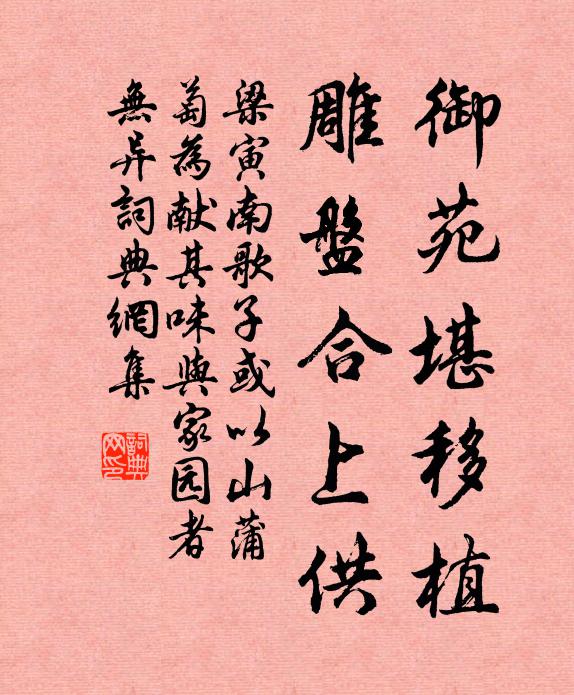 御苑堪移植
雕盤合上供
梁寅南歌子或以山蒲
萄為献其味與家园者
無异詞典網集
詞典
网印